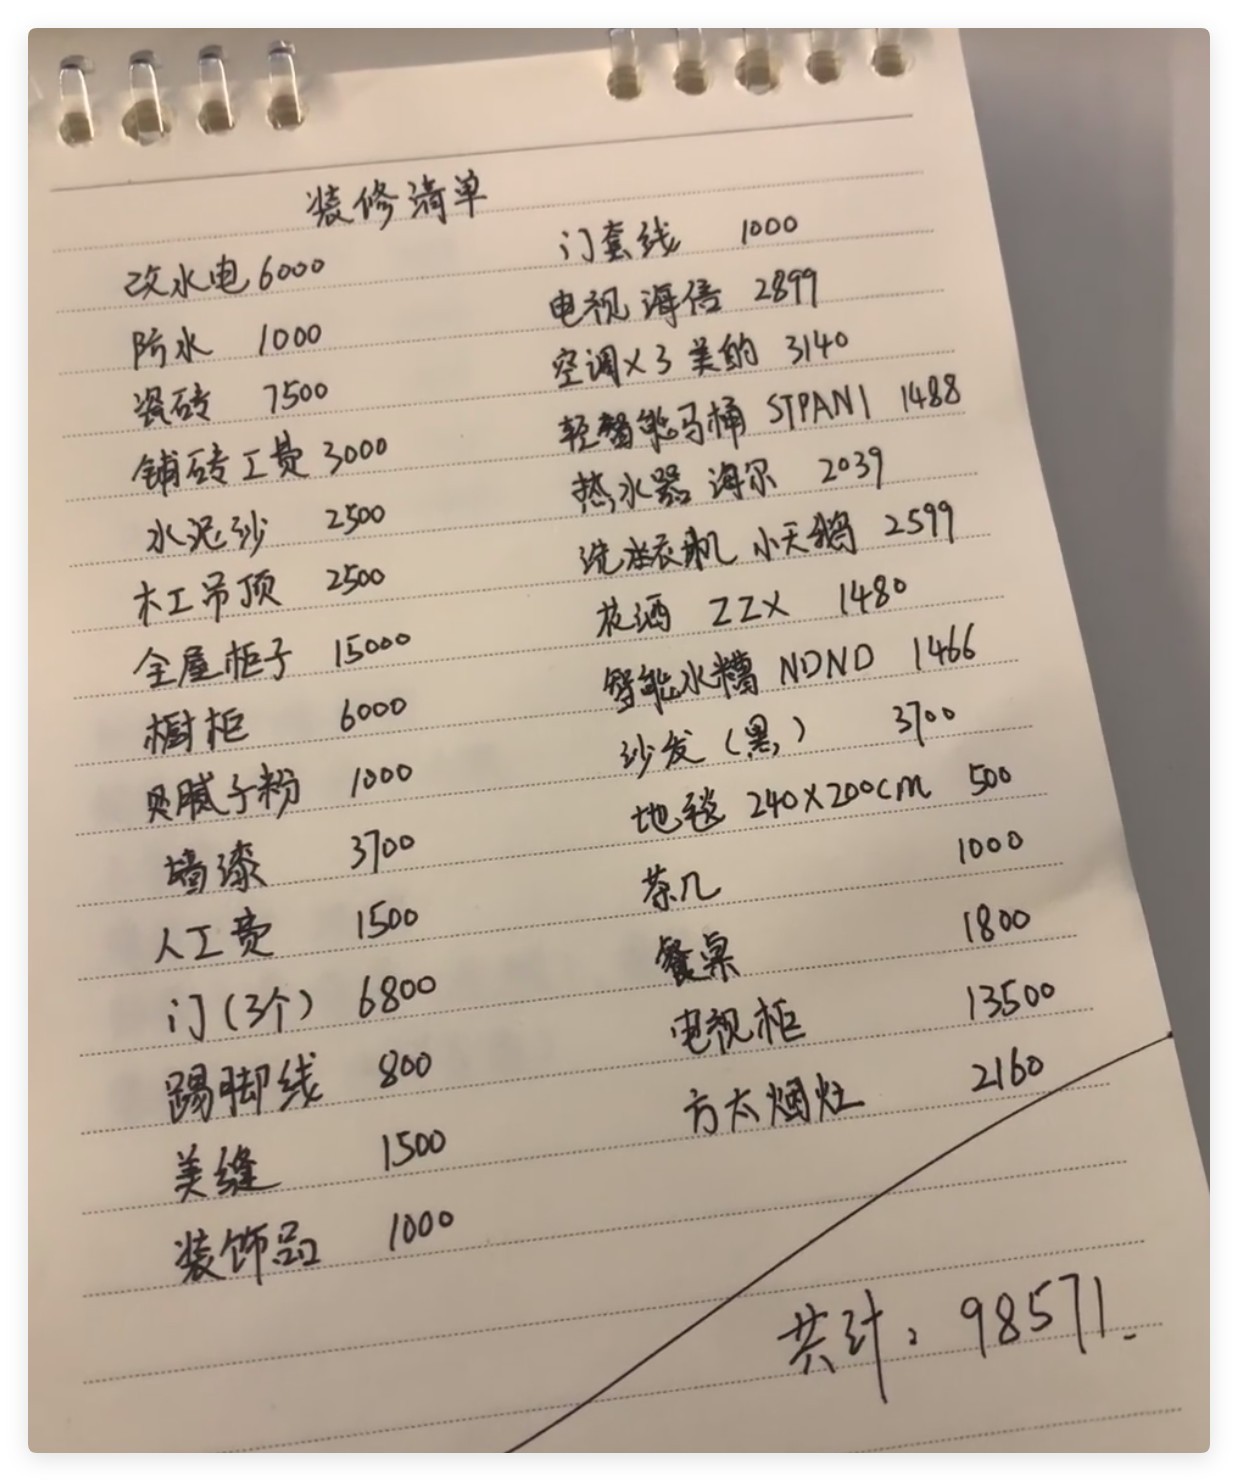 装修清单
改水电 6000
防水 1000
瓷砖 7500
铺砖工费 3000
水泥沙 2500
木工吊顶 2500
全屋柜子 15000
橱柜 6000
贝腻子粉 1000
墙漆 3700
人工费 1500
门(3个) 6800
踢脚线 800
美缝 1500
装饰品 1000
门套线 1000
电视 海信 2899
空调×3 美的 3140
轻智能马桶 STPANI 1488
热水器 海尔 2039
洗衣机 小天鹅 2599
花洒 ZZX 1480
智能水槽 NDND 1466
沙发(黑) 3700
地毯 240×200cm 500
茶几 1000
餐桌 1800
电视柜 13500
方太烟灶 2160
共计: 98571.